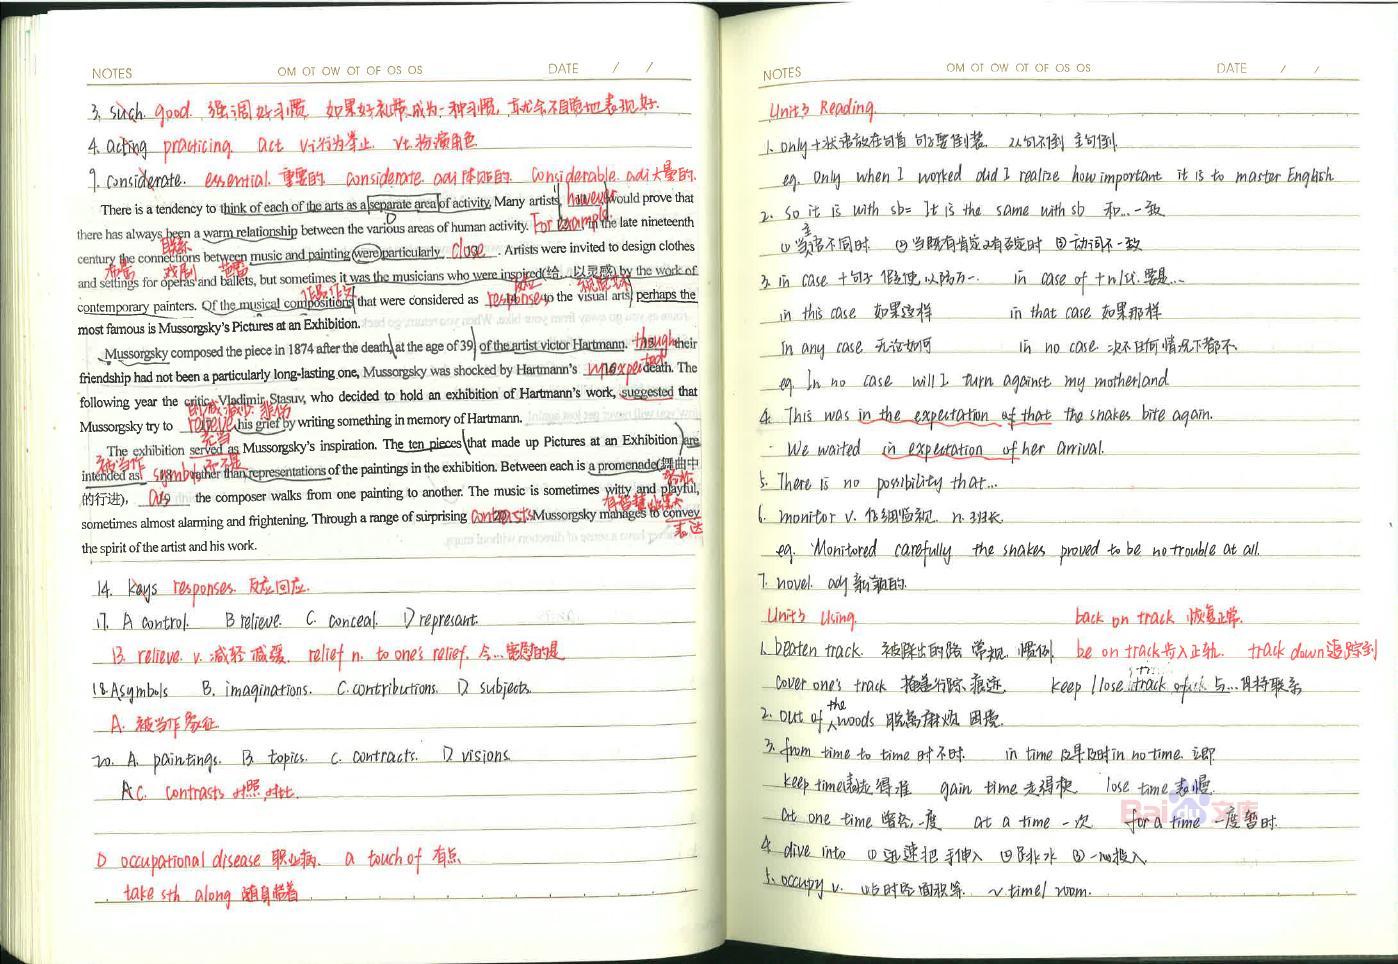 NOTES OM OT OW OT OF OS OS DATE / /
3. such. good. 强调好习惯, 如果好礼貌成为一种习惯, 就会不自觉地表现好.
4. acting practicing. act vi行为举止 vt.扮演角色
9. considerate. essential. 重要的. considerate. adj 体贴的. considerable. adj大量的.
There is a tendency to think of each of the arts as a separate area of activity. Many artists, however would prove that
there has always been a warm relationship between the various areas of human activity. For example. in the late nineteenth
联系
century the connections between music and painting were particularly close. Artists were invited to design clothes
布景 戏剧 芭蕾
and settings for operas and ballets, but sometimes it was the musicians who were inspired(给…以灵感) by the work of
作品,作文 反应 视觉艺术
contemporary painters. Of the musical compositions that were considered as responses to the visual arts, perhaps the
most famous is Mussorgsky's Pictures at an Exhibition.
Mussorgsky composed the piece in 1874 after the death, at the age of 39, of the artist victor Hartmann. though their
friendship had not been a particularly long-lasting one, Mussorgsky was shocked by Hartmann's unexpected death. The
following year the critic, Vladimir Stasuv, who decided to hold an exhibition of Hartmann's work, suggested that
减少 悲伤
Mussorgsky try to relieve his grief by writing something in memory of Hartmann.
充当
The exhibition served as Mussorgsky's inspiration. The ten pieces that made up Pictures at an Exhibition are
被当作 而不是
intended as symbols rather than representations of the paintings in the exhibition. Between each is a promenade(舞曲中
的行进), as the composer walks from one painting to another. The music is sometimes witty and playful,
sometimes almost alarming and frightening. Through a range of surprising contrasts Mussorgsky manages to convey
表达
the spirit of the artist and his work.
14. keys responses. 反应回应.
17. A control. B relieve. C. conceal. D represant.
B. relieve. v. 减轻 减缓. relief n. to one's relief. 令…宽慰的是
18. A symbols B. imaginations. C. contributions. D. subjects.
A. 被当作象征
20. A. paintings. B. topics. C. contracts. D visions.
C. contrasts 对照,对比.
D occupational disease 职业病. a touch of 有点
take sth along 随身带着
NOTES OM OT OW OT OF OS OS DATE / /
Unit3 Reading.
1. only + 状语放在句首 句子要倒装. 从句不倒 主句倒.
eg. Only when I worked did I realize how important it is to master English
2. so it is with sb = It is the same with sb 和…一致
主
① 当语不同时. ② 当既有肯定又有否定时 ③ 动词不一致
3. in case + 句子 假使,以防万一. in case of + n/sb. 要是…
in this case 如果这样 in that case 如果那样
in any case 无论如何 in no case 决不,任何情况下都不
eg. In no case will I turn against my motherland
4. This was in the expectation of that the snakes bite again.
We waited in expectation of her arrival.
5. There is no possibility that…
6. monitor v. 仔细监视. n. 班长.
eg. Monitored carefully the snakes proved to be no trouble at all.
7. novel. adj 新颖的.
Unit3 Using. back on track 恢复正常.
1. beaten track. 被踩出的路 常规, 惯例 be on track 步入正轨. track down 追踪到
cover one's track 掩盖行踪,痕迹. keep / lose track of 与…保持联系
the
2. out of woods 脱离麻烦 困境.
3. from time to time 时不时. in time 及早及时 in no time. 立即
keep time 表走得准 gain time 走得快 lose time 表慢.
at one time 曾经一度 at a time 一次 for a time 一度暂时.
Bai du 文库
4. dive into ① 迅速把手伸入 ② 跳水 ③ 一心投入.
5. occupy v. 占时间 面积等. ~ time / room.